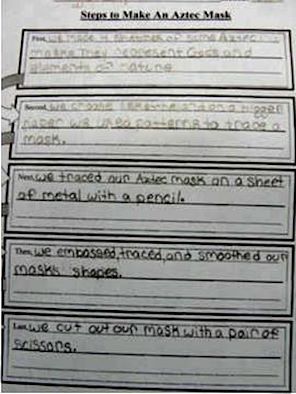 Steps to Make An Aztec Mask
First, we made 4 sketches of some Aztec
masks they represent Gods and
elements of nature
Second, we and on a bigger
paper we used patterns to trace a
mask.
Next, we traced our Aztec mask on a sheet
of metal with a pencil.
Then, we embossed, traced, and smoothed our
masks shapes.
Last, we cut out our mask with a pair of
scissors.